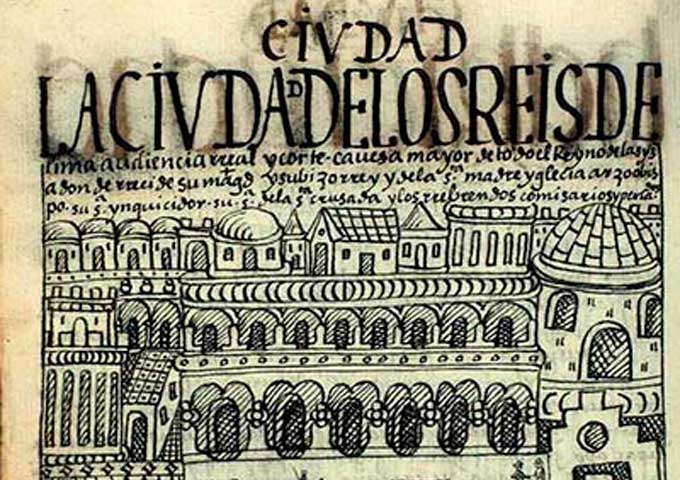 CIVDAD
LACIVDADDELOSREISDE
lima audiencia rreal y corte - cauesa mayor de todo el rreyno de las yᷤs
adonde rrecide su mag͞d y su bizorrey y de la s.ᵃ madre yglecia arzobis
po. su s.ᵃ ynquicidor. su s.ᵃ de la s.ᵗᵃ crusada y los rreberendos comisarios y perla